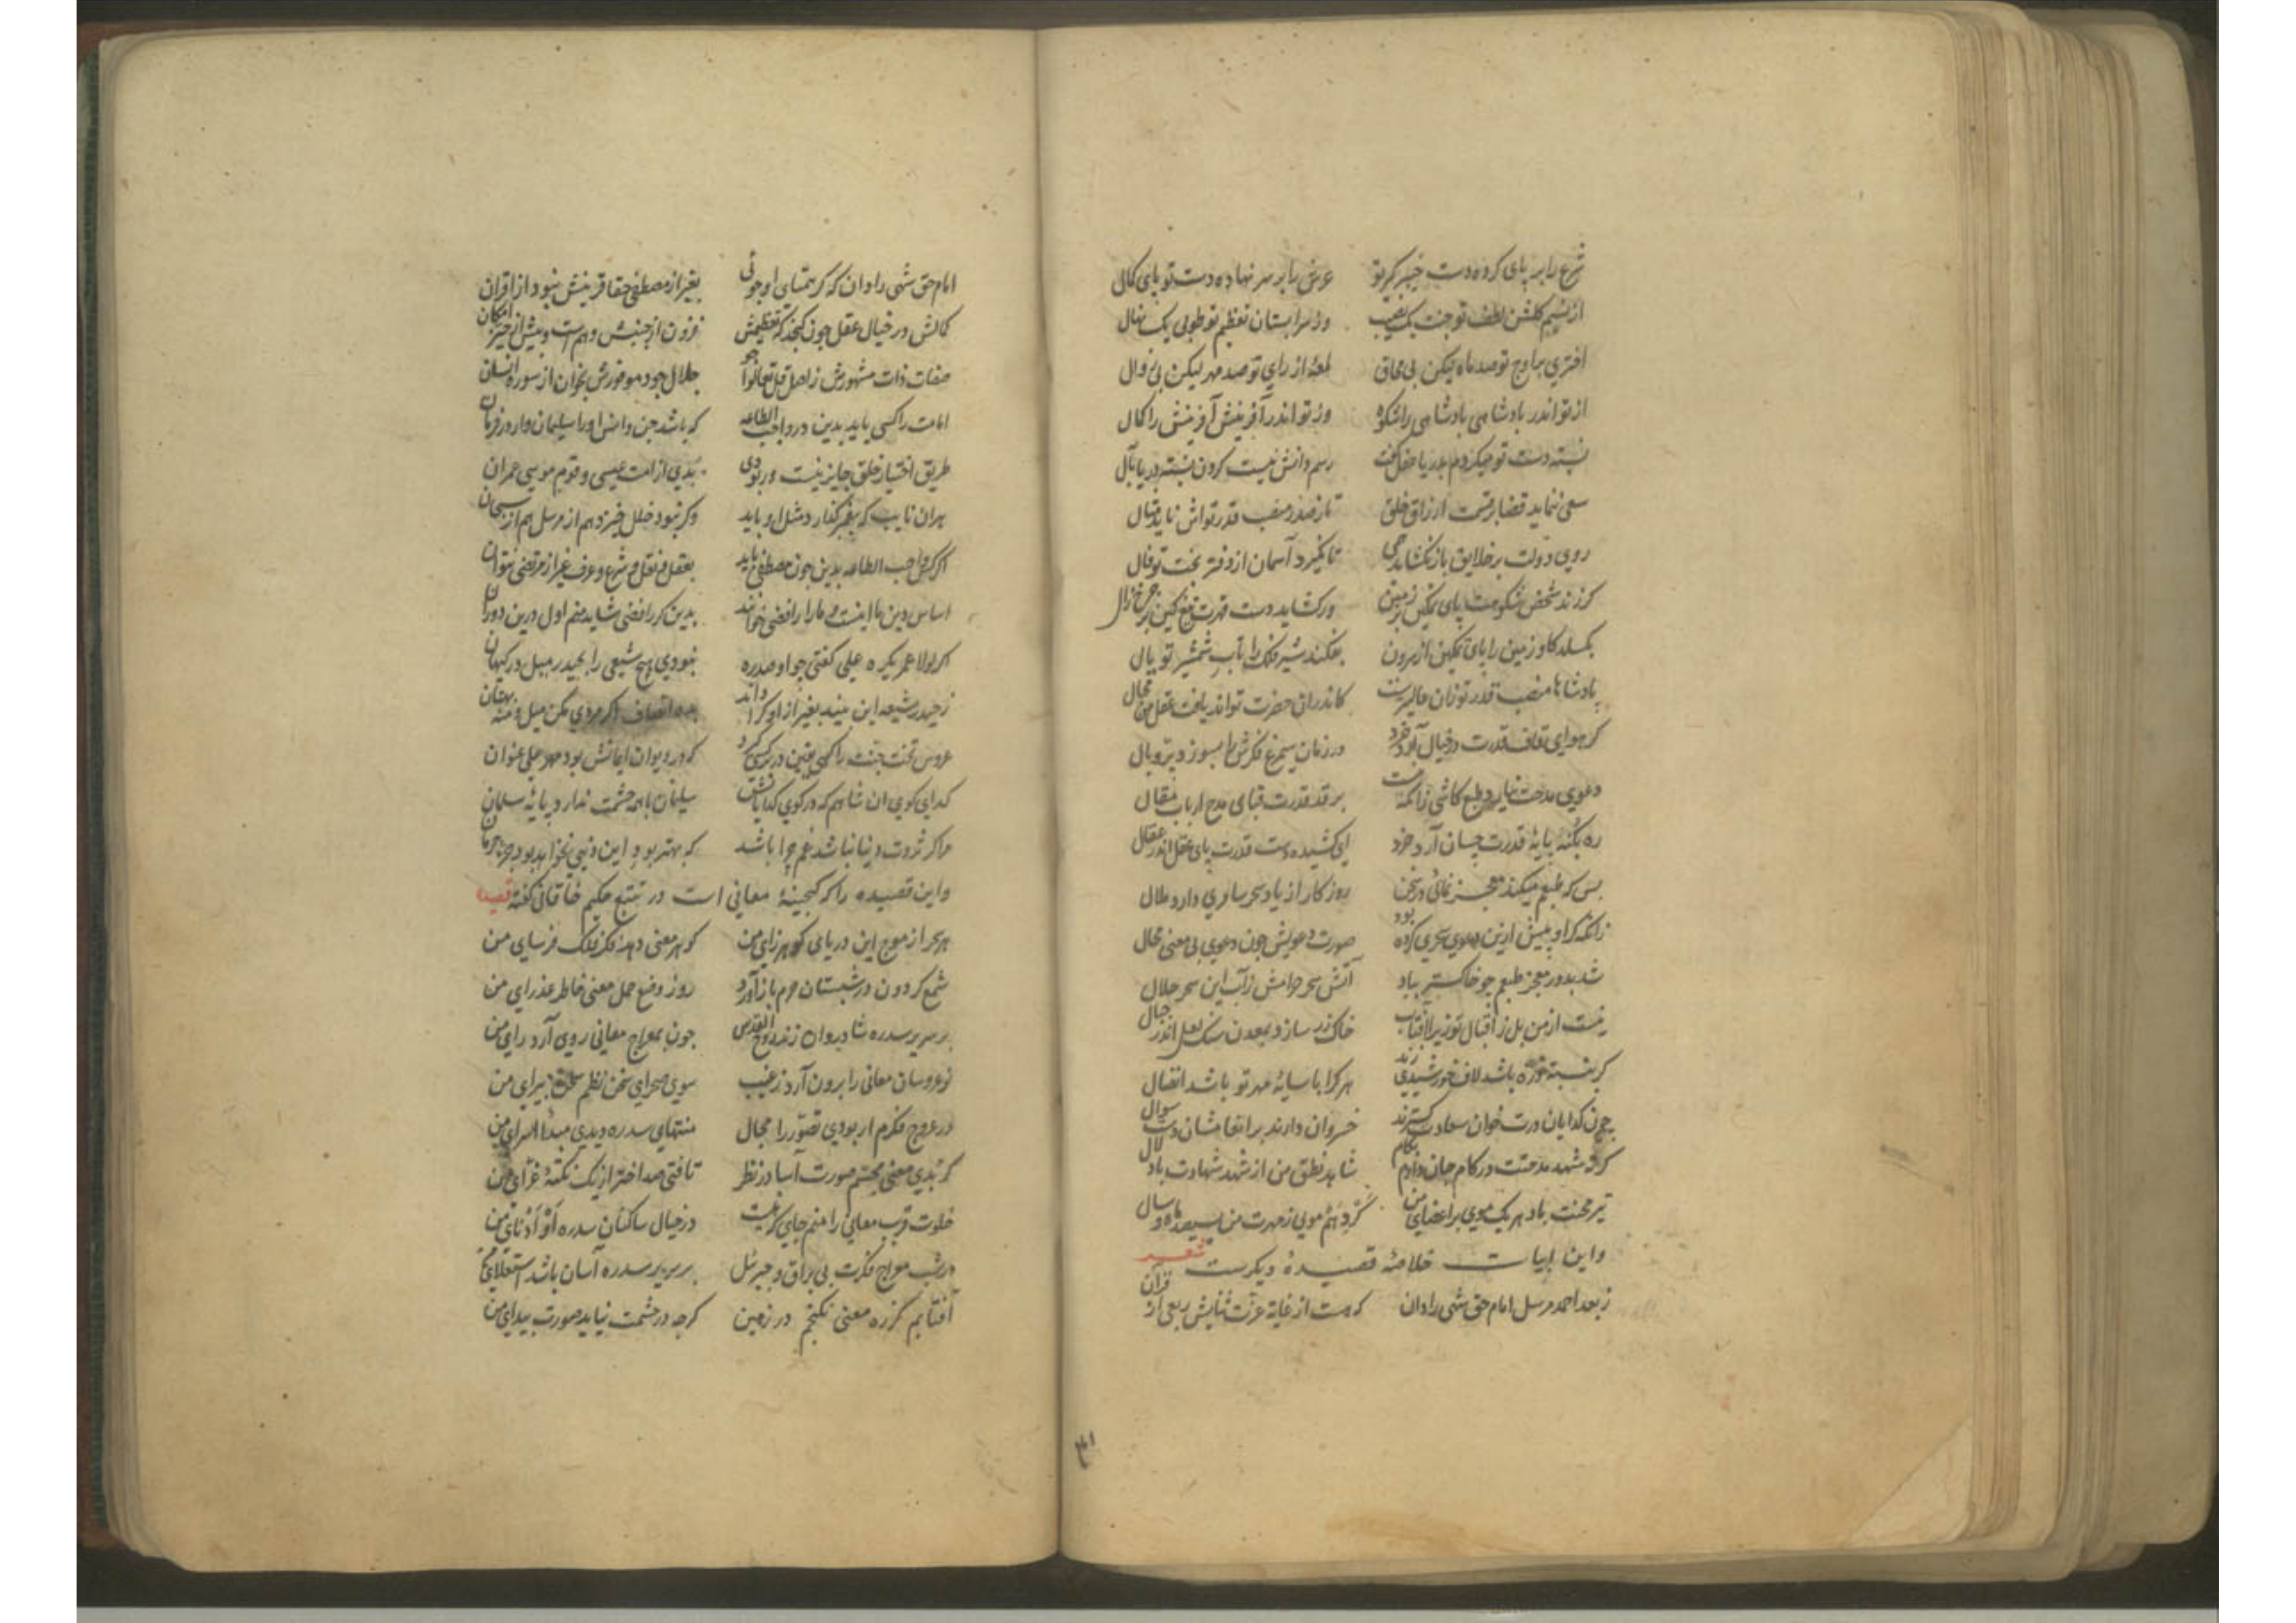 شرع را بر پای کرده دست خیبر گیر تو عرش را بر سر نهاده دست تو پای کمال
از نسیم گلشن لطف تو جنت یک وز سرابستان تعظیم تو طوبی یک نهال
اختری بر اوج تو صد ماه لیکن بی محاق لمعهٔ از رای تو صد مهر لیکن بی زوال
از تو اندر بادشاهی بادشاهی را شکوه وز تو اندر آفرینش آفرینش را کمال
نسبت دست تو میکردم بدریا عقل گفت رسم دانش نیست کردن نسبت دریا بآل
سعی ننماید قضا بر قسمت ارزاق خلق تا ز صدر منصب قدر تواش ناید مثال
روی دولت بر خلایق باز نگشاید همی تا نگیرد آسمان از دفتر بخت تو فال
کر زند شخص شکوهت پای تمکین بر زمین ور کشاید دست قهرت تیغ کین بر چرخ زال
بگسلد کاو زمین را پای تمکین از سرون بفکند شیر فلک را تاب شمشیر تو یال
پادشاها منصب قدر تو زان عالیترست کاندران حضرت تواند یافت عقل من مجال
کر هوای قاف قدرت در خیال آرد خرد در زمان سیمرغ فکرش را بسوزد پر و بال
دعوی مدحت نیارد طبع کاشی زانکه نیست بر قد قدرت قبای مدح ارباب مقال
ره بکنه پایهٔ قدرت چسان آرد خرد ای کشیده دست قدرت پای عقل اندر عقال
بس که طبعم میکند معجز نمائی در سخن روزکار از یاد سحر سامری دارد ملال
زانکه کر او پیش ازین دعوی سحری کرده بود صورت دعویش چون دعوی بی معنی محال
شد بدور معجز طبعم چو خاکستر بباد آتش سحر حرامش زآب این سحر حلال
نیست از من بل ز اقبال تو زیرا آفتاب خاک زر سازد بمعدن سنک لعل اندر جبال
کر بنسبت ذره باشد لاف خورشیدی زند هر کرا با سایهٔ مهر تو باشد اتصال
چون کدایان درت خوان سعادت کسترند خسروان دارند بر انعامشان دست سوال
کر نه شهد مدحتت در کام جان دارم بکام شاهد نطق من از شهد شهادت باد لال
تیر محنت باد هر یک موی بر اعضای من کر دهم مویی ز مهرت من بسیصد ماه و سال
واین ابیات خلاصهٔ قصیدهٔ دیکرست شعر
ز بعد احمد مرسل امام حق شهی را دان که هست از غایة عزت ثنایش ربعی از قرآن
امام حق شهی را دان که کر همتای او جوئی بغیر از مصطفی حقا قرینش نبود از اقران
کمالش در خیال عقل چون کنجد که تعظیمش فزون از جنبش وهم است و بیش از حیز امکان
صفات ذات مشهورش ز اصل قل تعالوا جو جلال جود موفورش بخوان از سوره انسان
امامت را کسی باید بدین در واجب الطاعه که باشد جن و انس او را سلیمان وار در فرمان
طریق اختیار خلق جایز نیست ور بودی بدی از امت عیسی و قوم موسی عمران
هران نایب که پیغمبر گذارد مثل او باید وکر نبود خلل خیزد هم از مرسل هم از سبحان
اگر کس واجب الطاعه بدین چون مصطفی باید بعقل و نقل و شرع و عرف غیر از مرتضی نتوان
اساس دین ما اینست و ما را رافضی خوانند بدین کر رافضی شاید منم اول درین دوران
اکر لولا عمر یکره علی کفتی چو او صد ره نبودی هیچ شیعی را بحیدر میل در کیهان
ز حیدر شیعه این بیند بغیر از او کرا داند بده انصاف اکر مردی مکن میل و منه بهتان
عروس تخت جنت را کسی بیند در بر گیرد که در دیوان ایمانش بود مهر علی عنوان
کدای کوی ان شاهم که در کوی کدایانش سلیمان با همه حشمت ندارد پایهٔ سلمان
مرا کر ثروت دنیا نباشد غم چرا باشد که بهتر بود این دنیی نخواهد بود جز حرمان
واین قصیده را که کنجینهٔ معانی است در تتبع حکیم خاقانی کفته قصیده
هر سحر از موج این دریای کوهر زای من کوهر معنی دهد فکر فلک فرسای من
شمع کردون در شبستان حرم باز آورد روز وضع حمل معنی خاطر عذرای من
بر سریر سدره شادروان زند روح القدس چون بمعراج معانی روی آرد رای من
نوعروسان معانی را برون آرد ز غیب سوی صحرای سخن نظم سخن پیرای من
در عروج فکرم ار بودی تصور را مجال منتهای سدره دیدی مبدأ اسرای من
کر بدی معنی مجسم صورت آسا در نظر تافتی صد اختر از یک نکتهٔ غرای من
خلوت قرب معانی را منم جایی که نیست در خیال ساکنان سدره أو أدنای من
در شب معراج فکرت بی براق و جبرئیل بر سریر سدره آسان باشد استعلای من
آفتابم کز ره معنی نکنجم در زمین کرچه در چشمت نیاید صورت پیدای من